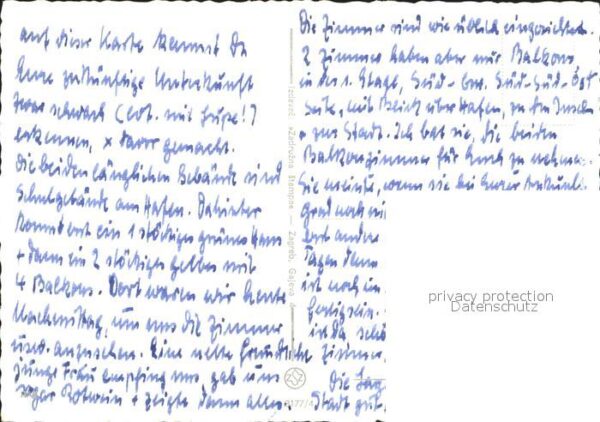 auf dieser Karte kannst Du
Eure zukünftige Unterkunft
zwar schwach (evt. mit Lupe!)
erkennen, x davor gemacht.
Die beiden länglichen Gebäude sind
Schulgebäude am Hafen. Dahinter
kommt erst ein 1 stöckiges grünes Haus
+ dann ein 2 stöckiges gelbes mit
4 Balkons. Dort waren wir heute
Nachmittag, um uns die Zimmer
usw. anzusehen. Eine nette freundliche
junge Frau empfing uns, gab uns
sogar Rotwein + zeigte dann alles.
Die Zimmer sind wie üblich eingerichtet.
2 Zimmer haben aber nur Balkons
in der 1. Etage, Süd- bzw. Süd-Süd-Ost
Seite, mit Blick über Hafen, zu den Inseln
+ zur Stadt. Ich bat sie, die beiden
Balkonzimmer für Euch zu nehmen.
Sie meinte, wenn sie bei Eurer Ankunft
grad noch ni
erst ander
Tagen dann
ist noch ein
fertig sein.
in da schö
Zimmer.
Die Lag
Stadt gut.
privacy protection
Datenschutz